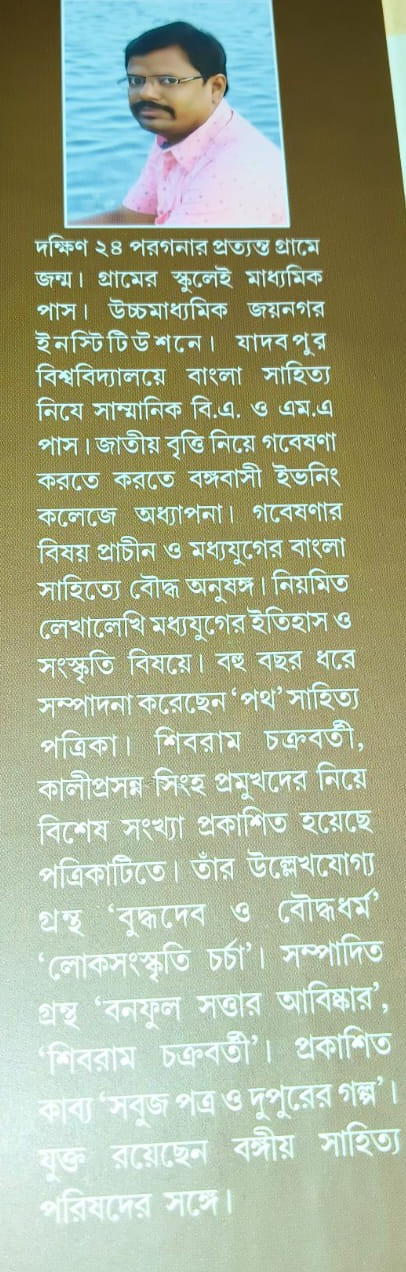 দক্ষিণ ২৪ পরগনার প্রত্যন্ত গ্রামে
জন্ম। গ্রামের স্কুলেই মাধ্যমিক
পাস। উচ্চমাধ্যমিক জয়নগর
ইনস্টিটিউশনে। যাদবপুর
বিশ্ববিদ্যালয়ে বাংলা সাহিত্য
নিযে সাম্মানিক বি.এ. ও এম.এ
পাস। জাতীয় বৃত্তি নিয়ে গবেষণা
করতে করতে বঙ্গবাসী ইভনিং
কলেজে অধ্যাপনা। গবেষণার
বিষয় প্রাচীন ও মধ্যযুগের বাংলা
সাহিত্যে বৌদ্ধ অনুষঙ্গ। নিয়মিত
লেখালেখি মধ্যযুগের ইতিহাস ও
সংস্কৃতি বিষয়ে। বহু বছর ধরে
সম্পাদনা করেছেন ‘পথ’ সাহিত্য
পত্রিকা। শিবরাম চক্রবর্তী,
কালীপ্রসন্ন সিংহ প্রমুখদের নিয়ে
বিশেষ সংখ্যা প্রকাশিত হয়েছে
পত্রিকাটিতে। তাঁর উল্লেখযোগ্য
গ্রন্থ ‘বুদ্ধদেব ও বৌদ্ধধর্ম’
‘লোকসংস্কৃতি চর্চা’। সম্পাদিত
গ্রন্থ ‘বনফুল সত্তার আবিষ্কার’,
‘শিবরাম চক্রবর্তী’। প্রকাশিত
কাব্য ‘সবুজ পত্র ও দুপুরের গল্প’।
যুক্ত রয়েছেন বঙ্গীয় সাহিত্য
পরিষদের সঙ্গে।